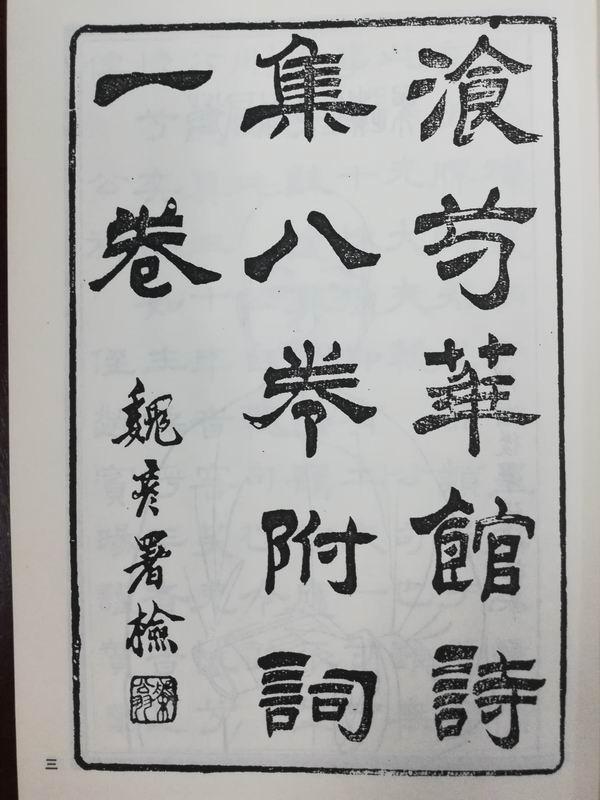 湌芍華館詩
集八卷附詞
一卷
魏彥署檢
三